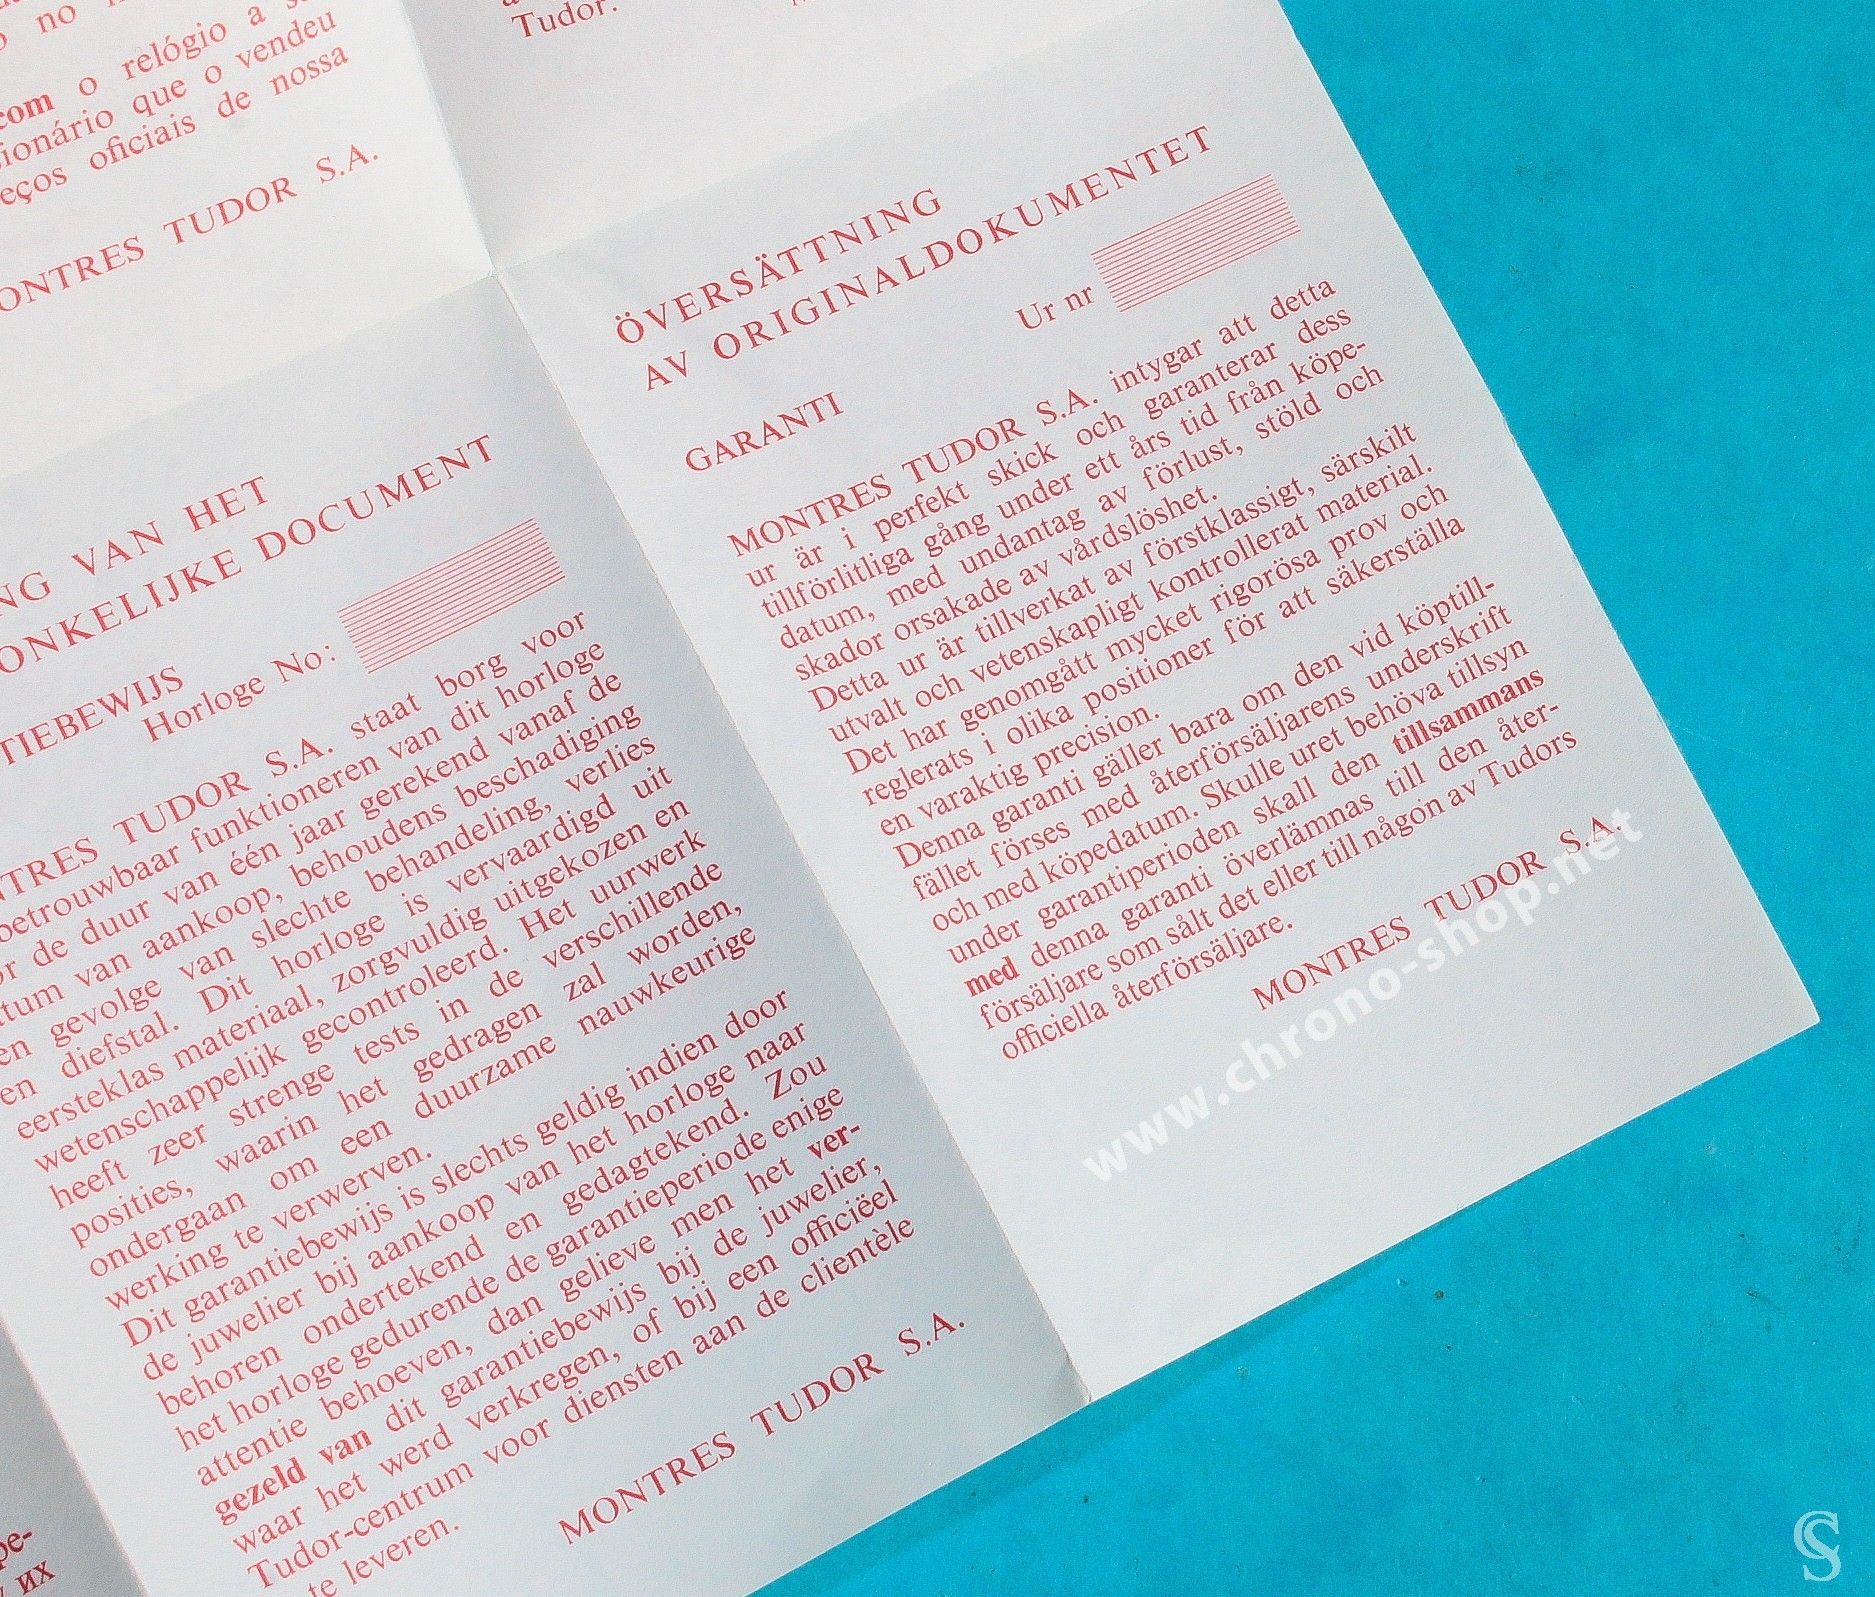 no
com o relógio a
que o vendeu
oficiais de nossa
MONTRES TUDOR S.A.
Tudor.
VAN HET
DOCUMENT
Horloge No:
TUDOR S.A. staat borg voor
betrouwbaar funktioneren van dit horloge
de duur van één jaar gerekend vanaf de
van aankoop, behoudens beschadiging
gevolge van slechte behandeling, verlies
en diefstal. Dit horloge is vervaardigd uit
eersteklas materiaal, zorgvuldig uitgekozen en
wetenschappelijk gecontroleerd. Het uurwerk
heeft zeer strenge tests in de verschillende
posities, waarin het gedragen zal worden,
ondergaan om een duurzame nauwkeurige
werking te verwerven.
Dit garantiebewijs is slechts geldig indien door
de juwelier bij aankoop van het horloge naar
behoren ondertekend en gedagtekend. Zou
het horloge gedurende de garantieperiode enige
attentie behoeven, dan gelieve men het ver-
gezeld van dit garantiebewijs bij de juwelier,
waar het werd verkregen, of bij een officiëel
Tudor-centrum voor diensten aan de clientèle
te leveren.
MONTRES TUDOR S.A.
ÖVERSÄTTNING
AV ORIGINALDOKUMENTET
Ur nr
GARANTI
MONTRES TUDOR S.A. intygar att detta
ur är i perfekt skick och garanterar dess
tillförlitliga gång under ett års tid från köpe-
datum, med undantag av förlust, stöld och
skador orsakade av vårdslöshet.
Detta ur är tillverkat av förstklassigt, särskilt
utvalt och vetenskapligt kontrollerat material.
Det har genomgått mycket rigorösa prov och
reglerats i olika positioner för att säkerställa
en varaktig precision.
Denna garanti gäller bara om den vid köptill-
fället förses med återförsäljarens underskrift
och med köpedatum. Skulle uret behöva tillsyn
under garantiperioden skall den tillsammans
med denna garanti överlämnas till den åter-
försäljare som sålt det eller till någon av Tudors
officiella återförsäljare.
MONTRES TUDOR S.A.
www.chrono-shop.net
их